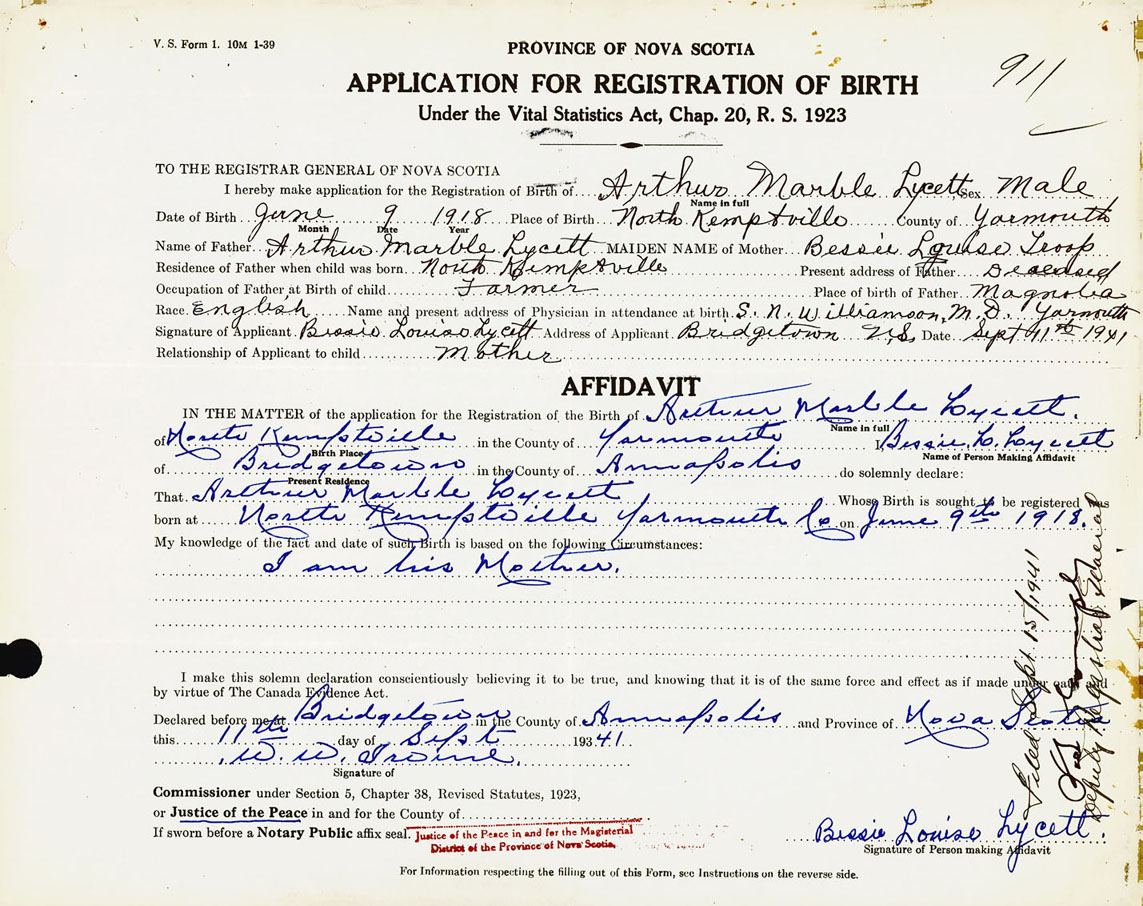 V. S. Form 1. 10M 1-39
PROVINCE OF NOVA SCOTIA
911
APPLICATION FOR REGISTRATION OF BIRTH
Under the Vital Statistics Act, Chap. 20, R. S. 1923
TO THE REGISTRAR GENERAL OF NOVA SCOTIA
I hereby make application for the Registration of Birth of Arthur Marble Lycett Sex Male
Name in full
Date of Birth June 9 1918 Place of Birth North Kemptville County of Yarmouth
Month Date Year
Name of Father Arthur Marble Lycett MAIDEN NAME of Mother Bessie Louise Troop
Residence of Father when child was born North Kemptville Present address of Father Deceased
Occupation of Father at Birth of child Farmer Place of birth of Father Magnolia
Race English Name and present address of Physician in attendance at birth S. N. Williamson, M. D. Yarmouth
Signature of Applicant Bessie Louise Lycett Address of Applicant Bridgetown N.S. Date Sept 11th 1941
Relationship of Applicant to child Mother
AFFIDAVIT
IN THE MATTER of the application for the Registration of the Birth of Arthur Marble Lycett.
Name in full
of North Kemptville in the County of Yarmouth I, Bessie L. Lycett
Birth Place Name of Person Making Affidavit
of Bridgetown in the County of Annapolis do solemnly declare:
Present Residence
That Arthur Marble Lycett Whose Birth is sought to be registered was
born at North Kemptville Yarmouth Co on June 9th 1918.
My knowledge of the fact and date of such Birth is based on the following Circumstances:
I am his Mother.
I make this solemn declaration conscientiously believing it to be true, and knowing that it is of the same force and effect as if made under oath and
by virtue of The Canada Evidence Act.
Declared before me at Bridgetown in the County of Annapolis and Province of Nova Scotia
this 11th day of Sept 19341
W. W. Irvine.
Signature of
Commissioner under Section 5, Chapter 38, Revised Statutes, 1923,
or Justice of the Peace in and for the County of
If sworn before a Notary Public affix seal.
Justice of the Peace in and for the Magisterial
District of the Province of Nova Scotia.
Bessie Louise Lycett.
Signature of Person making Affidavit
For Information respecting the filling out of this Form, see Instructions on the reverse side.
Filed Sept 15/1941
Deputy Registrar General